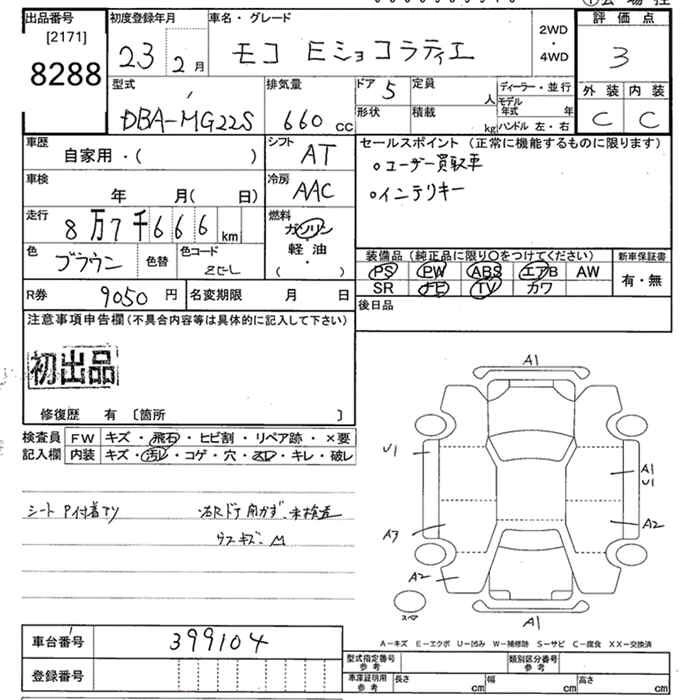 出品番号
[2171]
8288
初度登録年月
23 2月
車名・グレード
モコ Eショコラティエ
2WD
・
4WD
評価点
3
外装 内装
C C
型式
DBA-MG22S
排気量
660 cc
ドア 5
形状
定員 人
積載 kg
ディーラー・並行
モデル年式 年
ハンドル 左・右
車歴
自家用・( )
シフト
AT
セールスポイント (正常に機能するものに限ります)
○ユーザー買取車
○インテリキー
車検
年 月( 日)
冷房
AAC
走行
8万7千666 km
燃料
ガソリン
軽油
( ・ )
色
ブラウン
色替
色コード
ZCL
装備品 (純正品に限り○をつけてください)
PS PW ABS エアB AW
SR ナビ TV カワ
新車保証書
有・無
R券 9050 円
名変期限 月 日
後日品
注意事項申告欄(不具合内容等は具体的に記入して下さい)
初出品
修復歴 有 〔箇所 〕
検査員
記入欄
FW キズ・飛石・ヒビ割・リペア跡・×要
内装 キズ・汚レ・コゲ・穴・スレ・キレ・破レ
シート P付着アリ
右Rドア 角かず、未検査
ウスキズ、M
A1
U1
A1
U1
A3
A2
A2
A1
スペア
A－キズ E－エクボ U－凹み W－補修跡 S－サビ C－腐食 XX－交換済
車台番号 399104
登録番号
型式指定番号
参考
類別区分番号
参考
車庫証明用
参考
長さ cm
幅 cm
高さ cm